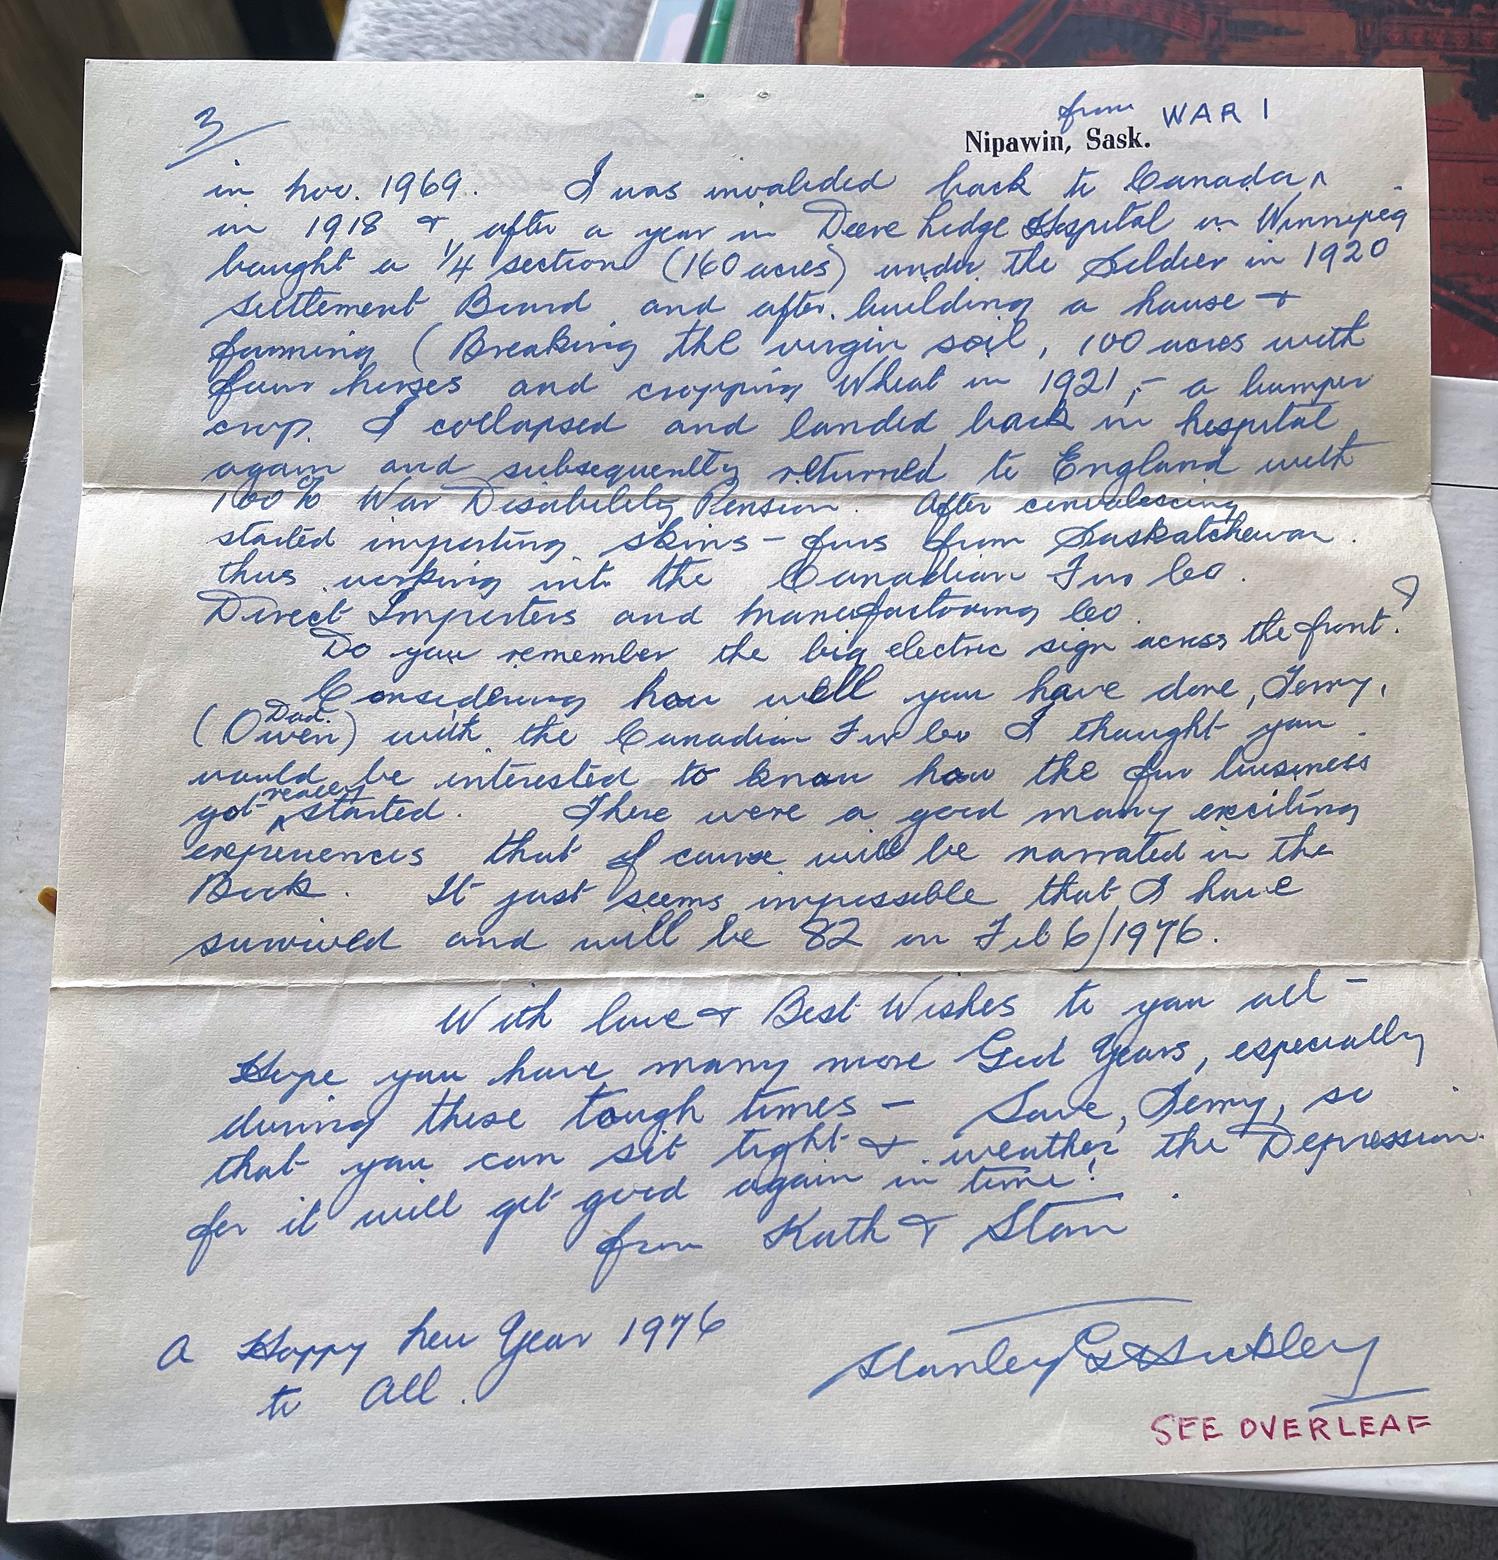 3/
from WAR 1
Nipawin, Sask.
in Nov. 1969. I was invalided back to Canada ^
in 1918 & after a year in Deere Lodge Hospital in Winnipeg
bought a 1/4 section (160 acres) under the Soldier in 1920
Settlement Board and after building a house &
farming (Breaking the virgin soil, 100 acres with
four horses and cropping Wheat in 1921, - a bumper
crop. I collapsed and landed back in hospital
again and subsequently returned to England with
100% War Disability Pension. After convalescing
started importing skins - furs from Saskatchewan.
thus working into the Canadian Fur Co.
Direct Importers and manufactoring Co.
Do you remember the big electric sign across the front?
Considering how well you have done, Terry,
Dad.
(Owen) with the Canadian Fur Co I thought you
would be interested to know how the fur business
got ^really started. There were a good many exciting
experiences that of course will be narrated in the
Book. It just seems impossible that I have
survived and will be 82 on Feb 6/1976.
With love & Best Wishes to you all -
Hope you have many more Good Years, especially
during these tough times - Save, Terry, so
that you can sit tight & weather the Depression.
for it will get good again in time!
from Kath & Stan
A Happy New Year 1976
to All.
Stanley
SEE OVERLEAF